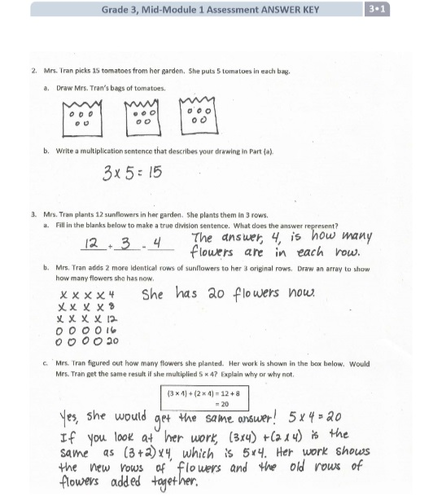 Grade 3, Mid-Module 1 Assessment ANSWER KEY 3•1
2. Mrs. Tran picks 15 tomatoes from her garden. She puts 5 tomatoes in each bag.
a. Draw Mrs. Tran's bags of tomatoes.
b. Write a multiplication sentence that describes your drawing in Part (a).
3 x 5 = 15
3. Mrs. Tran plants 12 sunflowers in her garden. She plants them in 3 rows.
a. Fill in the blanks below to make a true division sentence. What does the answer represent?
12 ÷ 3 = 4 The answer, 4, is how many
flowers are in each row.
b. Mrs. Tran adds 2 more identical rows of sunflowers to her 3 original rows. Draw an array to show
how many flowers she has now.
X X X X 4 She has 20 flowers now.
X X X X 8
X X X X 12
O O O O 16
O O O O 20
c. Mrs. Tran figured out how many flowers she planted. Her work is shown in the box below. Would
Mrs. Tran get the same result if she multiplied 5 × 4? Explain why or why not.
(3 × 4) + (2 × 4) = 12 + 8
= 20
Yes, she would get the same answer! 5 x 4 = 20
If you look at her work, (3x4) + (2x4) is the
same as (3+2)x4, which is 5x4. Her work shows
the new rows of flowers and the old rows of
flowers added together.